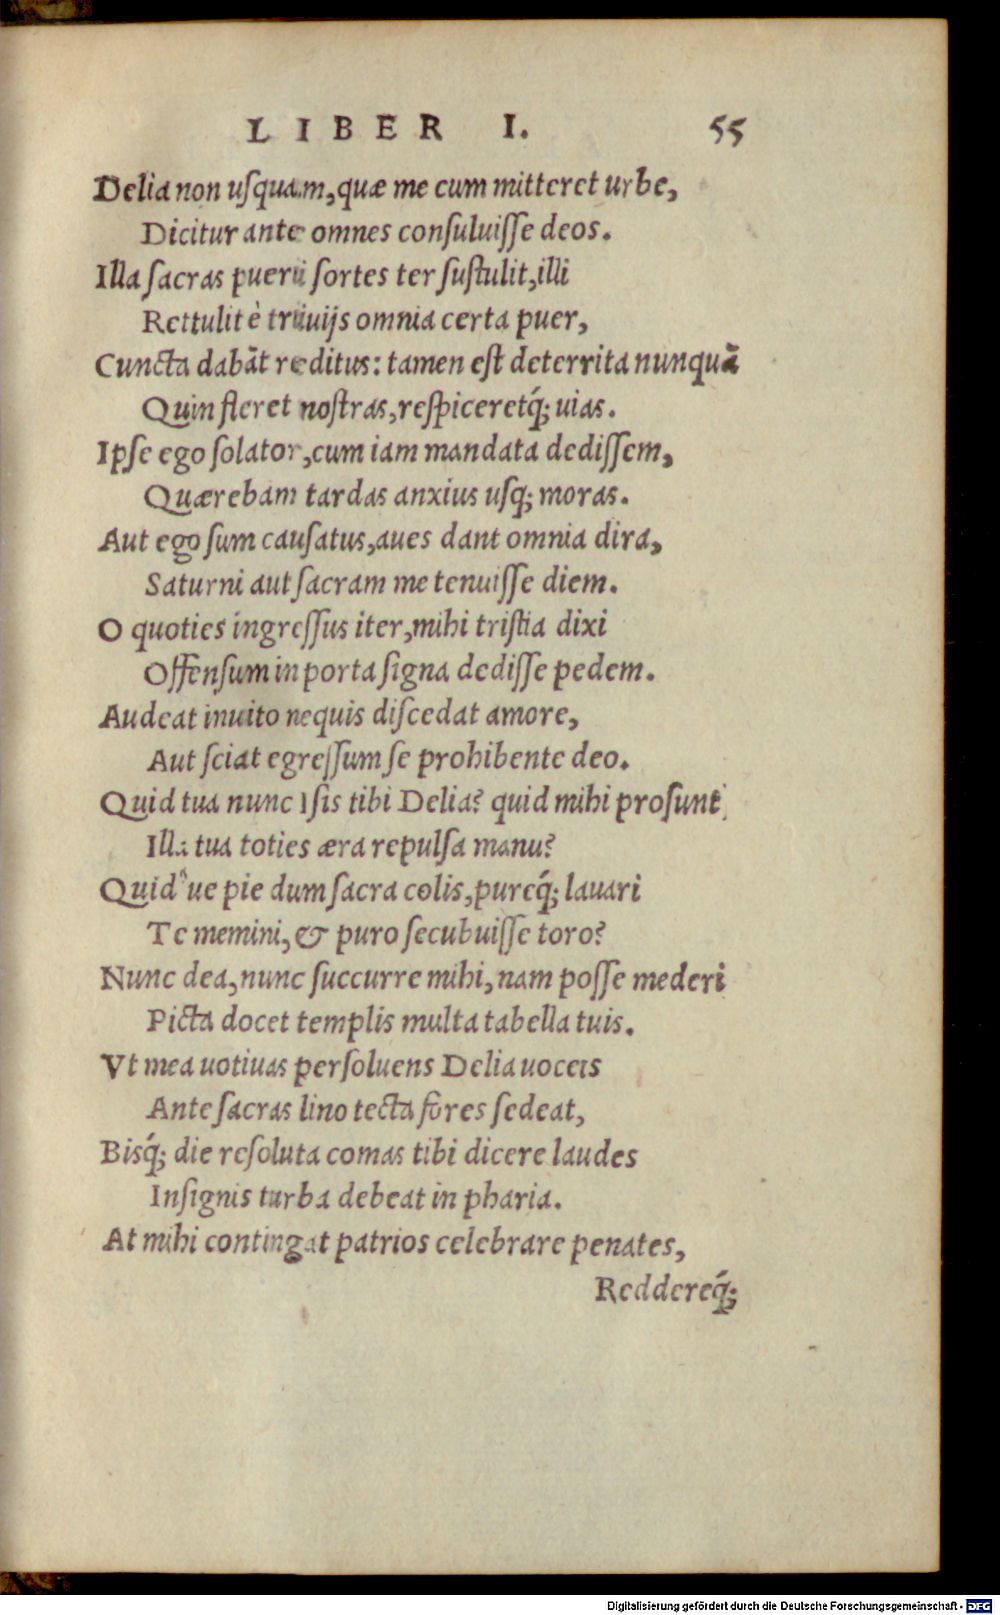 LIBER I. 55
Delia non uſquam, quæ me cum mitteret urbe,
Dicitur ante omnes conſuluiſſe deos.
Illa ſacras pueri ſortes ter ſuſtulit, illi
Rettulit è triuijs omnia certa puer,
Cuncta dabāt reditus: tamen eſt deterrita nunquā
Quin fleret noſtras, reſpiceretq́; uias.
Ipſe ego ſolator, cum iam mandata dediſſem,
Quærebam tardas anxius uſq; moras.
Aut ego ſum cauſatus, aues dant omnia dira,
Saturni aut ſacram me tenuiſſe diem.
O quoties ingreſſus iter, mihi triſtia dixi
Offenſum in porta ſigna dediſſe pedem.
Audeat inuito nequis diſcedat amore,
Aut ſciat egreſſum ſe prohibente deo.
Quid tua nunc Iſis tibi Delia? quid mihi proſunt
Illa tua toties æra repulſa manu?
Quid ue pie dum ſacra colis, pureq́; lauari
Te memini, & puro ſecubuiſſe toro?
Nunc dea, nunc ſuccurre mihi, nam poſſe mederi
Picta docet templis multa tabella tuis.
Vt mea uotiuas perſoluens Delia uoces
Ante ſacras lino tecta fores ſedeat,
Bisq́; die reſoluta comas tibi dicere laudes
Inſignis turba debeat in pharia.
At mihi contingat patrios celebrare penates,
Reddereq́;
Digitalisierung gefördert durch die Deutsche Forschungsgemeinschaft - DFG